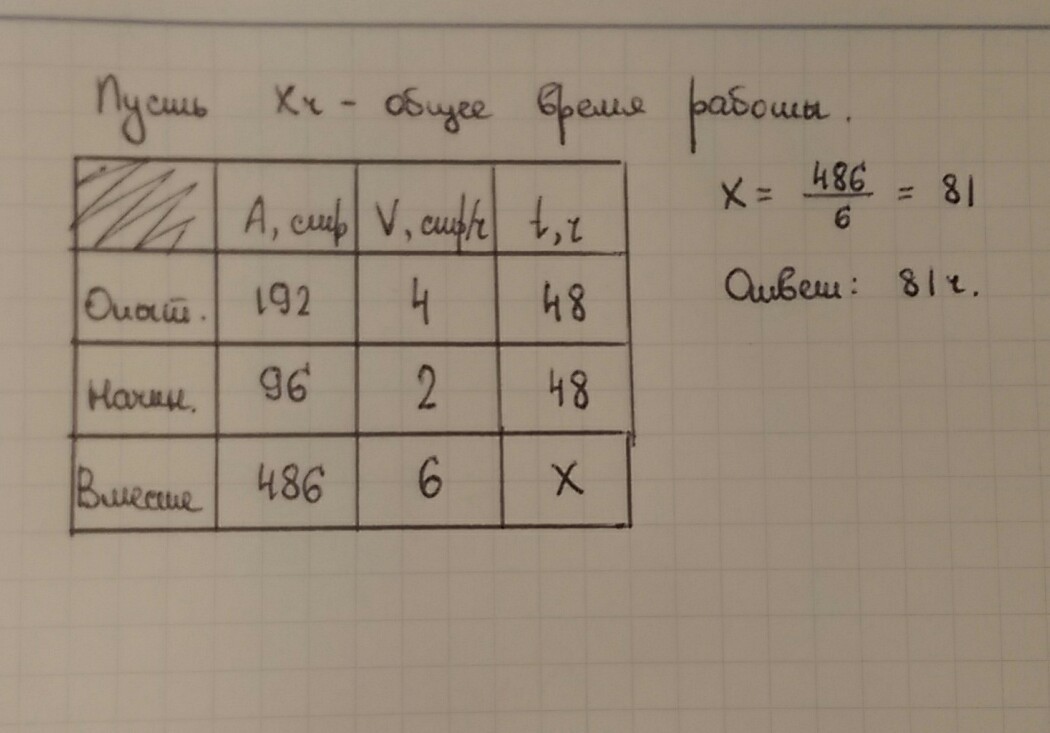 Пусть Xч - общее время работы.
A, стр V, стр/ч t, ч
Опыт. 192 4 48
Начин. 96 2 48
Вместе 486 6 X
X = 486/6 = 81
Ответ: 81ч.